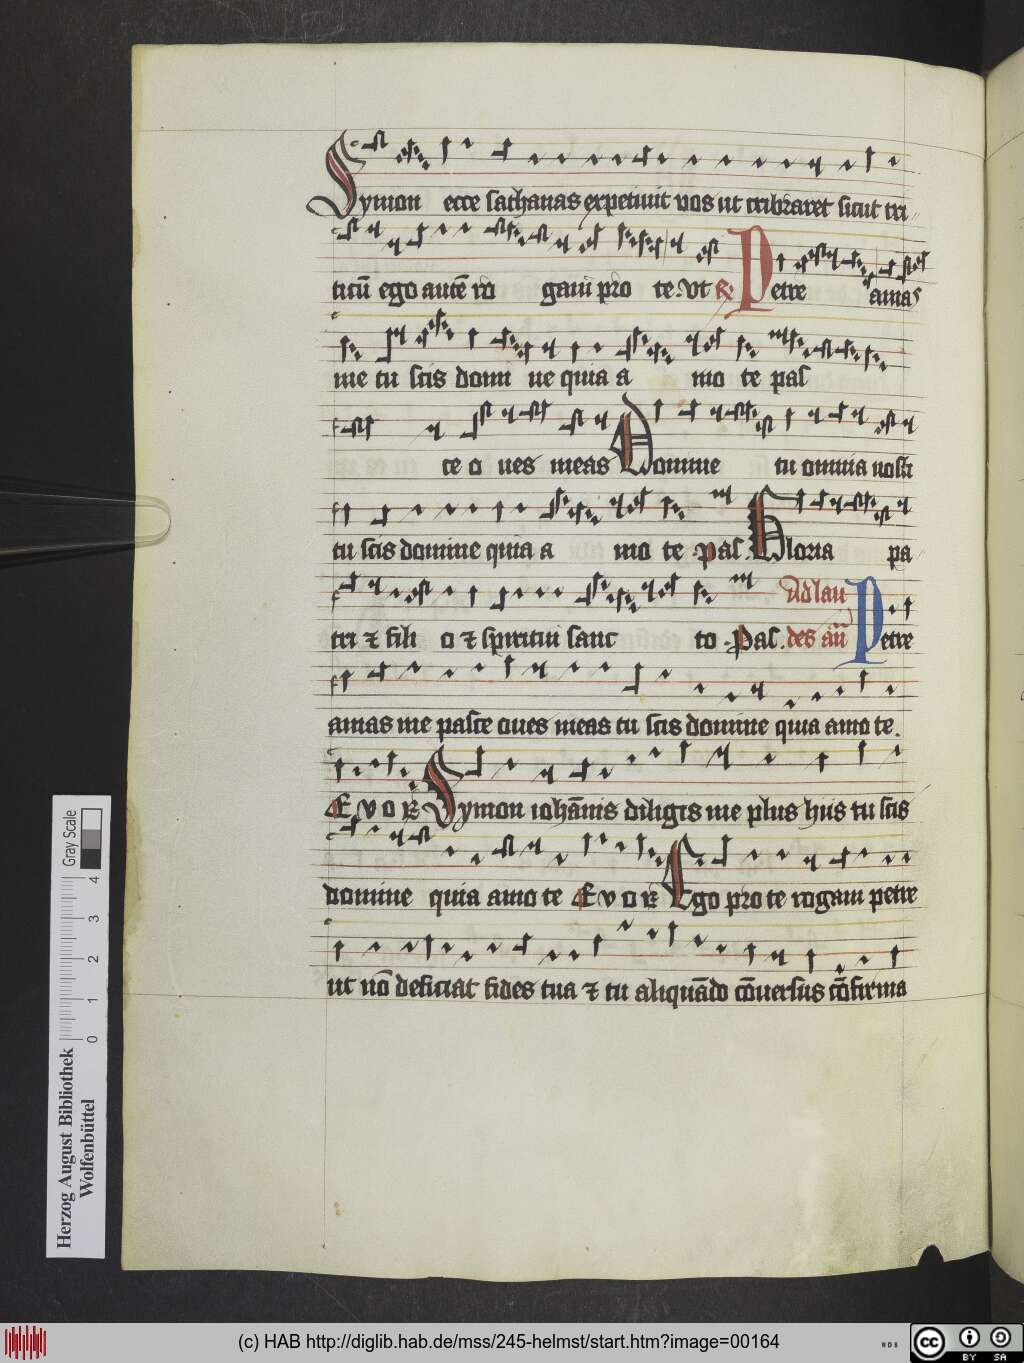 Symon ecce sathanas expetiuit vos ut cribraret sicut tri
ticū ego autē ro gaui pro te. Vt R. Petre amas
me tu scis domi ne quia a mo te pas
ce o ues meas Domine tu omnia nosti
tu scis domine quia a mo te . pas. Gloria pa
tri ⁊ fili o ⁊ spiritui sanc to . Pas. Ad lau
des añ Petre
amas me pasce oues meas tu scis domine quia amo te.
E v o R Symon iohānis diligis me plus hiis tu scis
domine quia amo te E v o R Ego pro te rogaui petre
ut nō deficiat fides tua ⁊ tu aliquādo cōuersus cōfirma
Gray Scale
4 3 2 1 0
Herzog August Bibliothek
Wolfenbüttel
(c) HAB http://diglib.hab.de/mss/245-helmst/start.htm?image=00164
WDB
cc BY SA